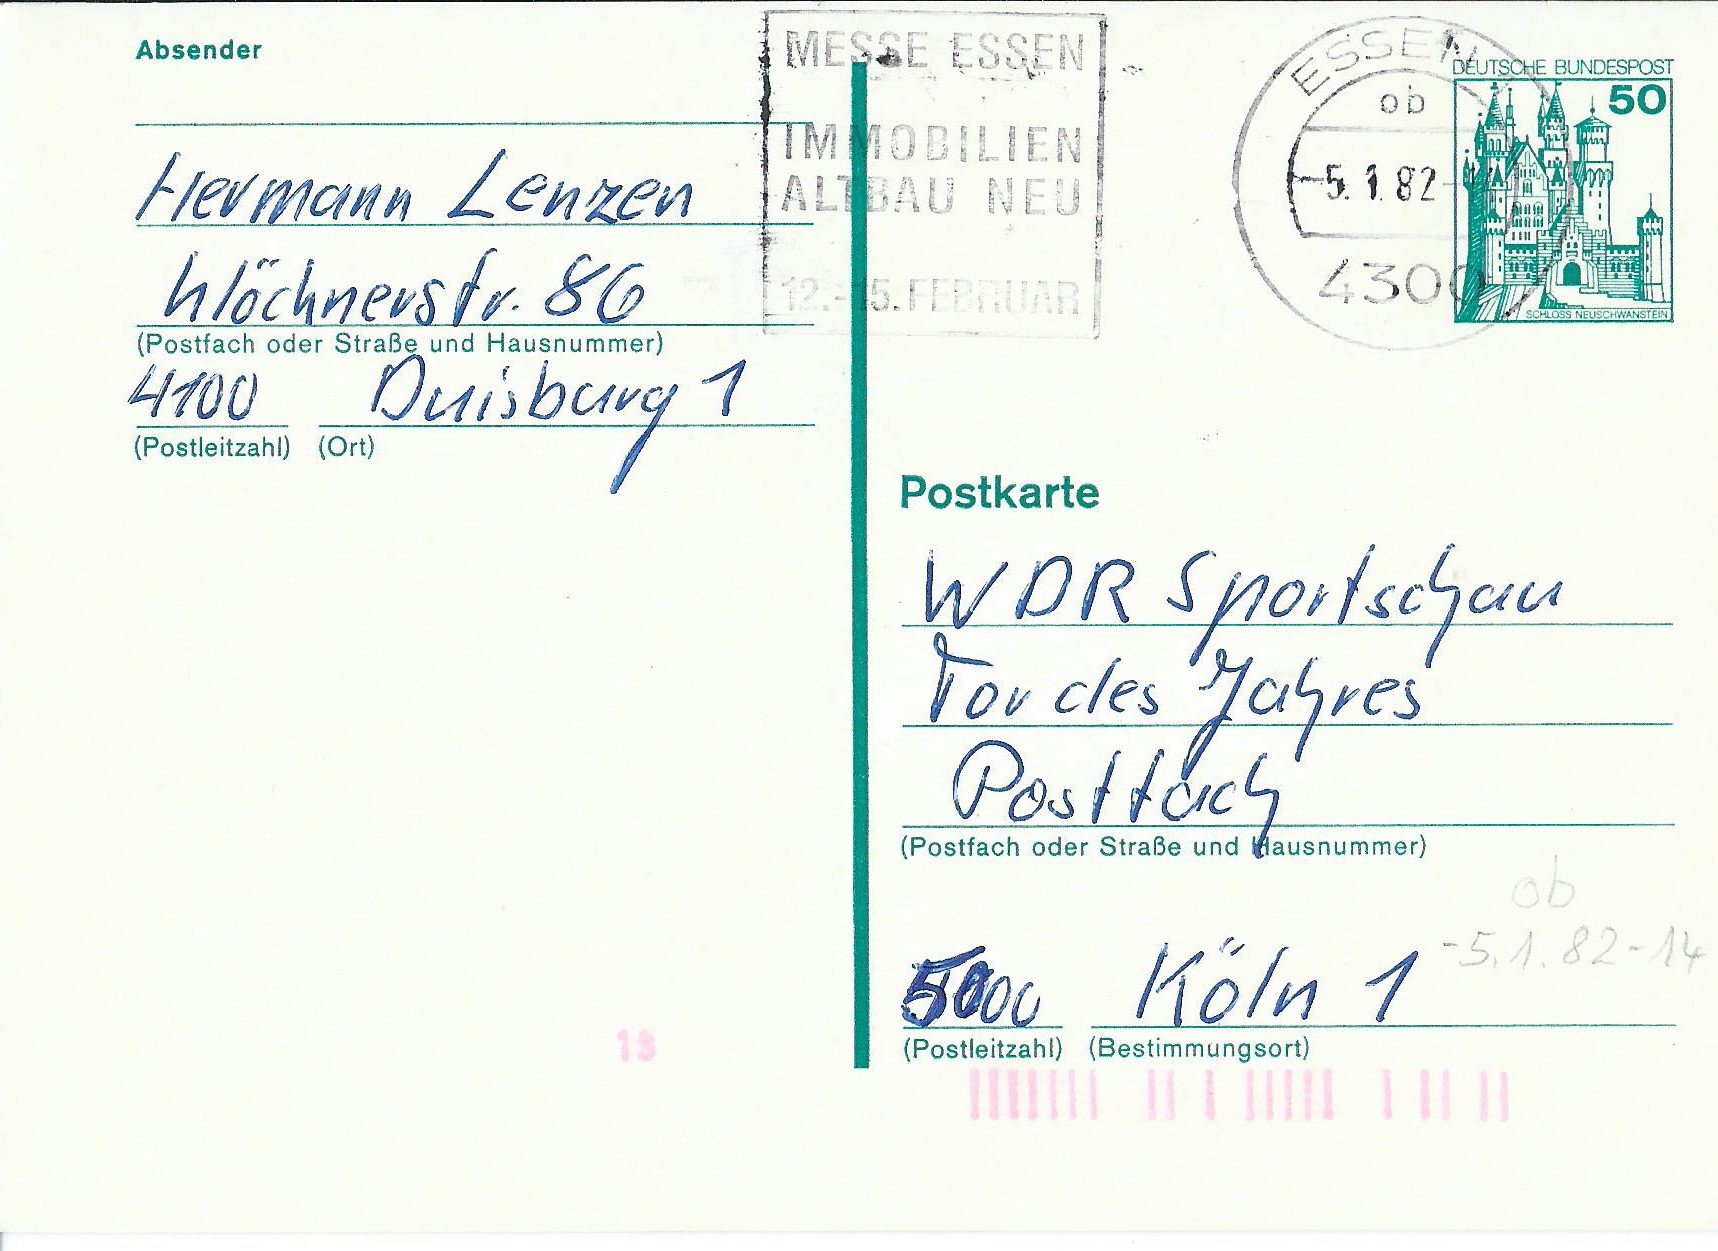 Absender
Hermann Lenzen
Wlöchnerstr. 86
(Postfach oder Straße und Hausnummer)
4100 Duisburg 1
(Postleitzahl) (Ort)
MESSE ESSEN
IMMOBILIEN
ALTBAU NEU
12.-15. FEBRUAR
ESSEN
ob
-5.1.82-14
4300
DEUTSCHE BUNDESPOST
50
SCHLOSS NEUSCHWANSTEIN
Postkarte
WDR Sportschau
Tor des Jahres
Postfach
(Postfach oder Straße und Hausnummer)
ob
-5.1.82-14
5000 Köln 1
(Postleitzahl) (Bestimmungsort)
19